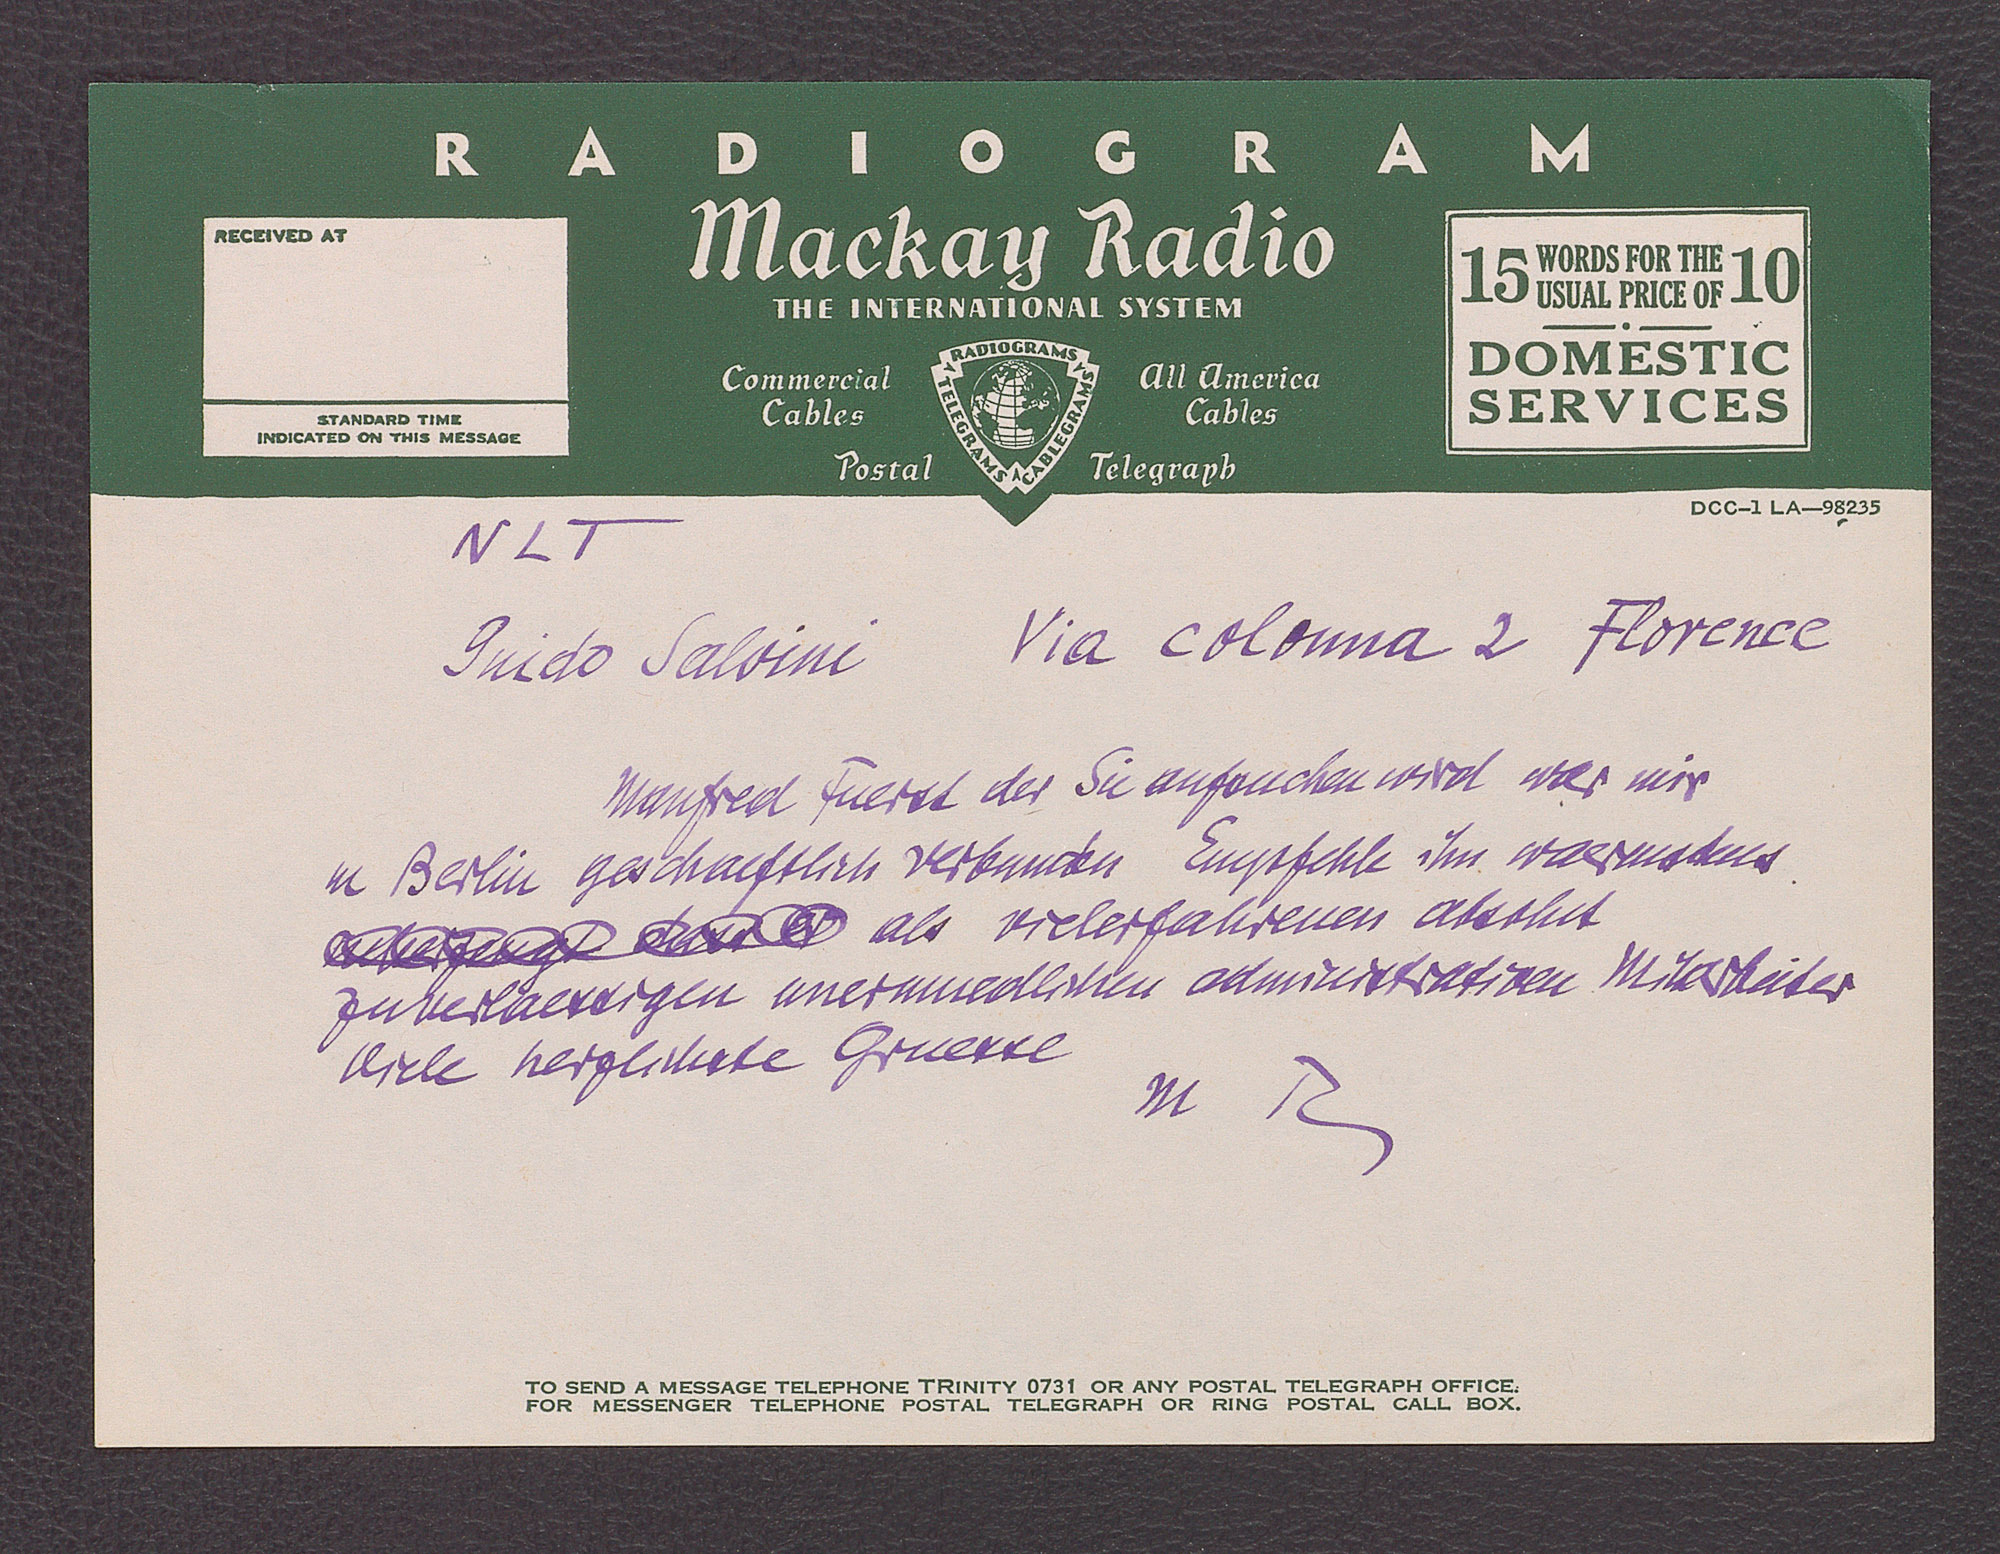 RADIOGRAM
Mackay Radio
THE INTERNATIONAL SYSTEM
RECEIVED AT
STANDARD TIME
INDICATED ON THIS MESSAGE
Commercial Cables
All America Cables
Postal Telegraph
RADIOGRAMS
TELEGRAMS
CABLEGRAMS
15 WORDS FOR THE USUAL PRICE OF 10
DOMESTIC
SERVICES
DCC-1 LA-98235
NLT
Guido Salvini Via colonna 2 Florence
Manfred Fuerst der Sie aufsuchen wird war mir
in Berlin geschaeftlich verbunden Empfehle ihn waermstens
als vielerfahrenen absolut
zuverlaessigen unermuedlichen administrativen Mitarbeiter
Viele herzlichste Gruesse
M R
TO SEND A MESSAGE TELEPHONE TRINITY 0731 OR ANY POSTAL TELEGRAPH OFFICE.
FOR MESSENGER TELEPHONE POSTAL TELEGRAPH OR RING POSTAL CALL BOX.